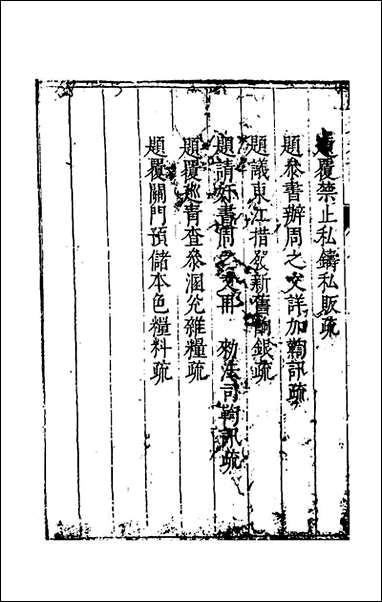 題覆禁止私鑄私販疏
題參書辦周之文詳加鞫訊疏
題議東江措發新舊餉銀疏
題請奸書周之文再 勑法司鞫訊疏
題覆廵青查參溷兊雜糧疏
題覆關門預儲本色糧料疏